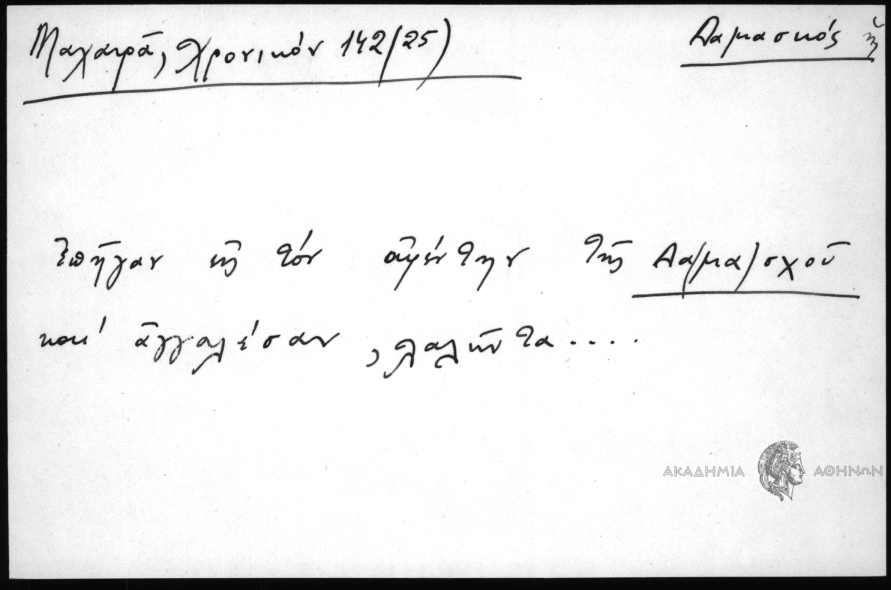 Μαχαιρᾶ, Χρονικόν 142/25) Δαμασκός ἡ
Ἐπῆγαν εἰς τὸν ἀφέντην τῆς Δα(μα)σχοῦ
καὶ ἀγγαλέσαν, λαλῶντα....
ΑΚΑΔΗΜΙΑ ΑΘΗΝΩΝ